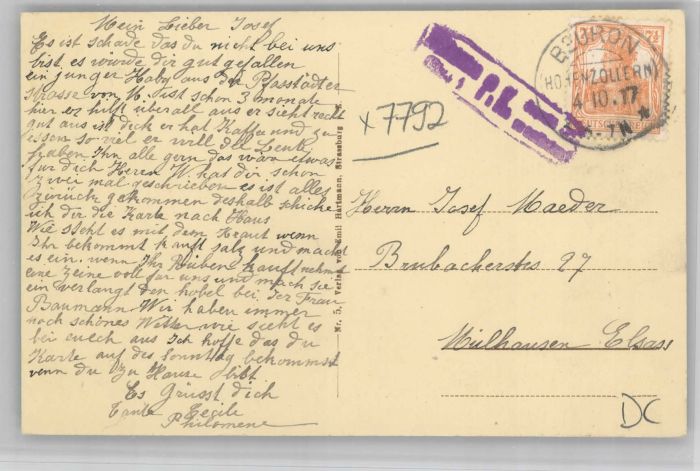 Mein Lieber Josef
Es ist schade das du nicht bei uns
bist es würde dir gut gefallen
ein junger Hahn aus der Pfastädter
Strasse von M. ist schon 3 monate
hier er hilft überall aus er sieht recht
gut aus ist dick er hat Kaffee und zu
essen so viel er will die Leute
haben Ihn alle gern das wäre etwas
für dich Herrn W. hat dir schon
zwei mal geschrieben es ist alles
zurück gekommen deshalb schicke
ich dir die Karte nach Haus
Wie steht es mit dem Kraut wenn
Ihr bekommt kauft salz und macht
es ein. wenn Ihr Rüben kauft nehmt
eine Zeine voll für uns und mach sie
ein verlangt den hobel bei der Frau
Baumann Wir haben immer
noch schönes Wetter wie sieht es
bei euch aus Ich hoffe das du
Karte auf des Sonntag bekommst
wenn du zu Hause bist
Es Grüsst dich
Tante Cecile
Philomene
Nr. 5. Verlag von Emil Hartmann, Strassburg
x 7792
P.K.
BEURON
(HOHENZOLLERN)
4.10.17
7½
Herrn Josef Maeder
Brubacherstes 27
Mülhausen Elsass
DC